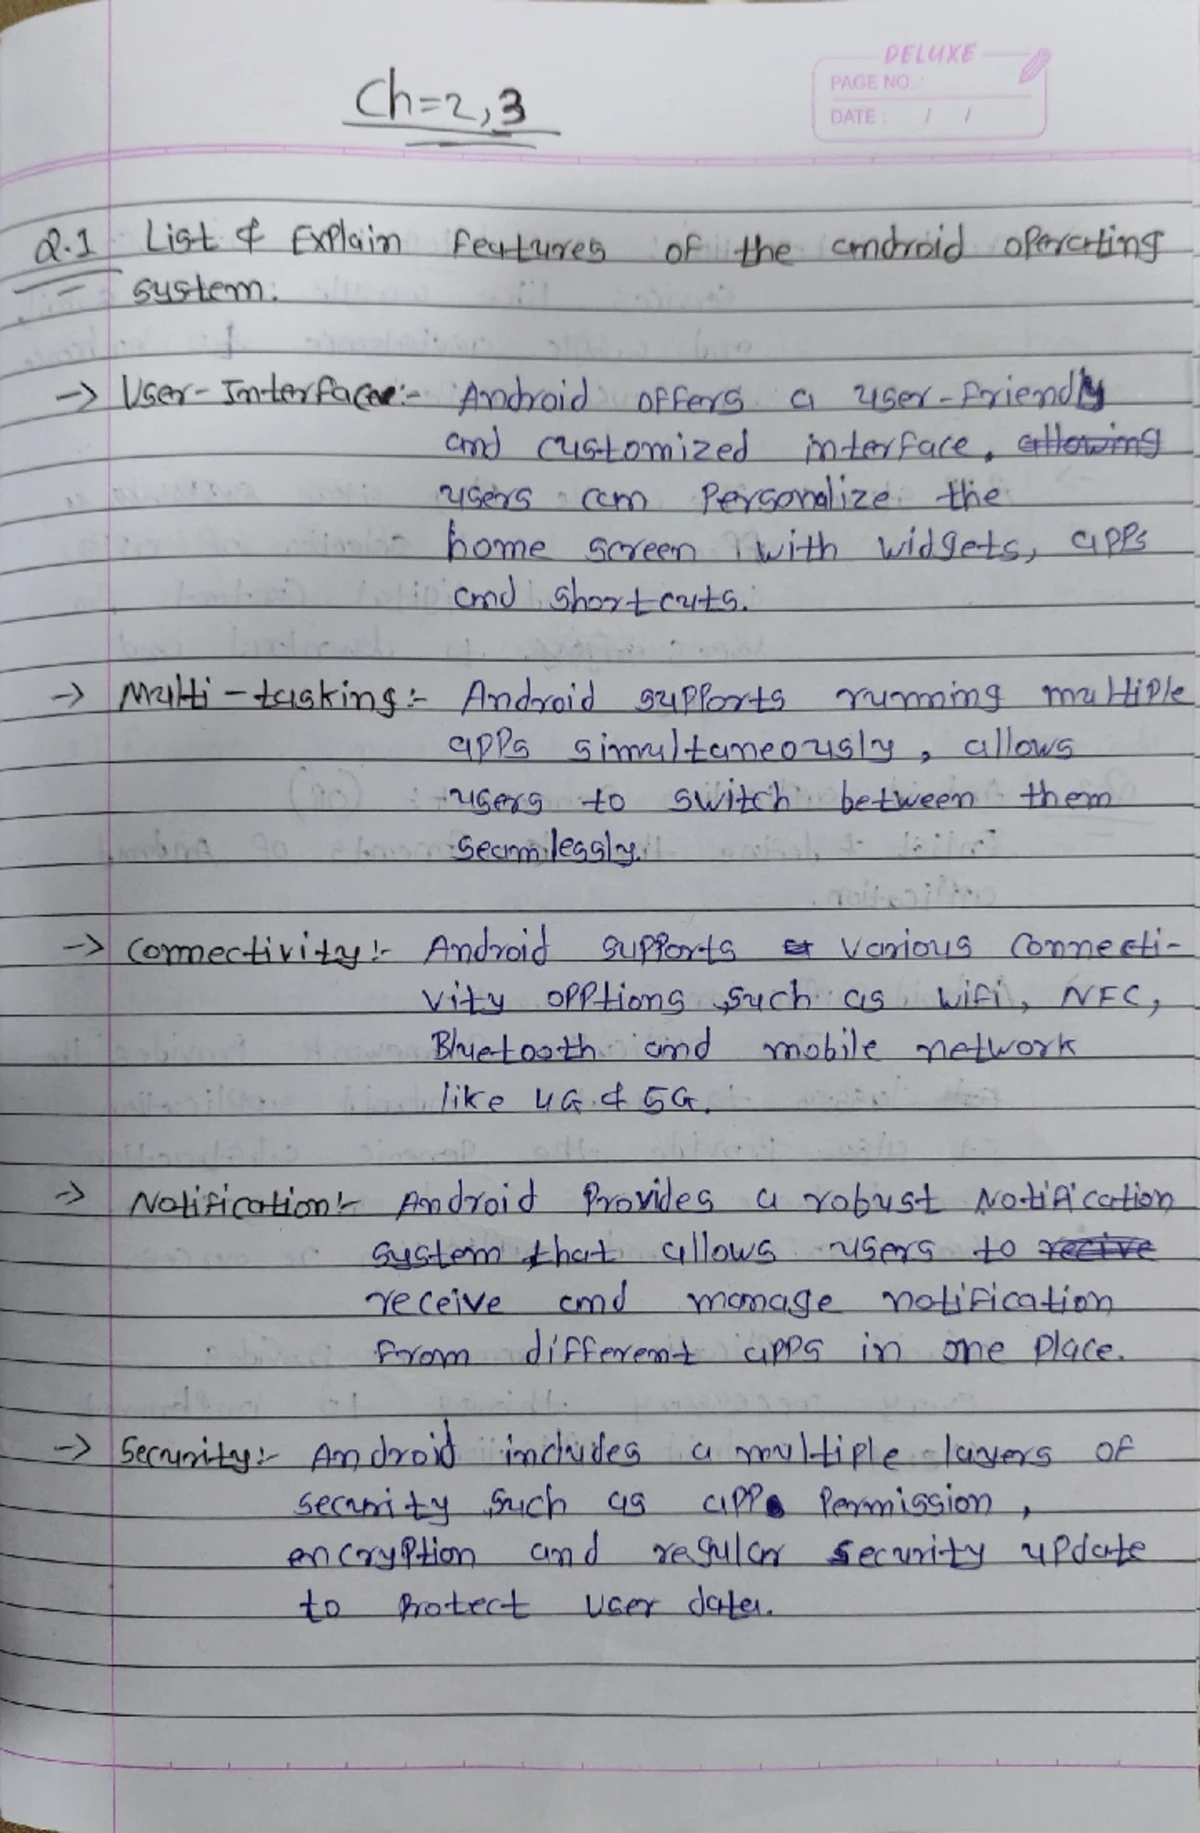 DELUXE
PAGE NO. :
DATE : / /
Ch=2,3
Q.1 List & Explain features of the android operating
system.
-> User-Interface:- Android offers a user-friendly
and customized interface. allowing
users can Personalize the
home screen with widgets, apps
and shortcuts.
-> Multi-tasking:- Android supports running multiple
apps simultaneously, allows
users to switch between them
seamlessly.
-> Connectivity:- Android supports various connecti-
vity opptions such as wifi, NFC,
Bluetooth and mobile network
like 4G & 5G.
-> Notification:- Android Provides a robust Notification
system that allows users to recive
receive and manage notification
from different apps in one place.
-> Security:- Android includes a multiple layers of
security such as app Permission,
encryption and regular security update
to Protect user data.